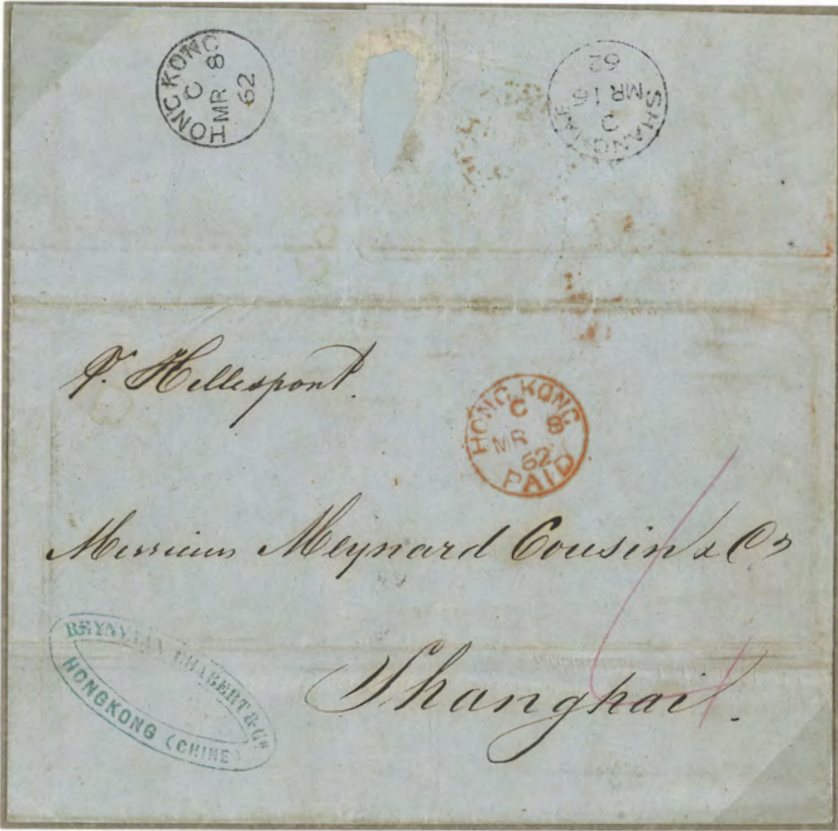 HONG KONG
C
8
MR
62
SHANGHAE
C
MR 16
62
Pr. Hellespont.
HONG KONG
C
8
MR
62
PAID
Messieurs Meynard Cousin & Co
Shanghai.
CHABERT & Co
HONGKONG (CHINE)